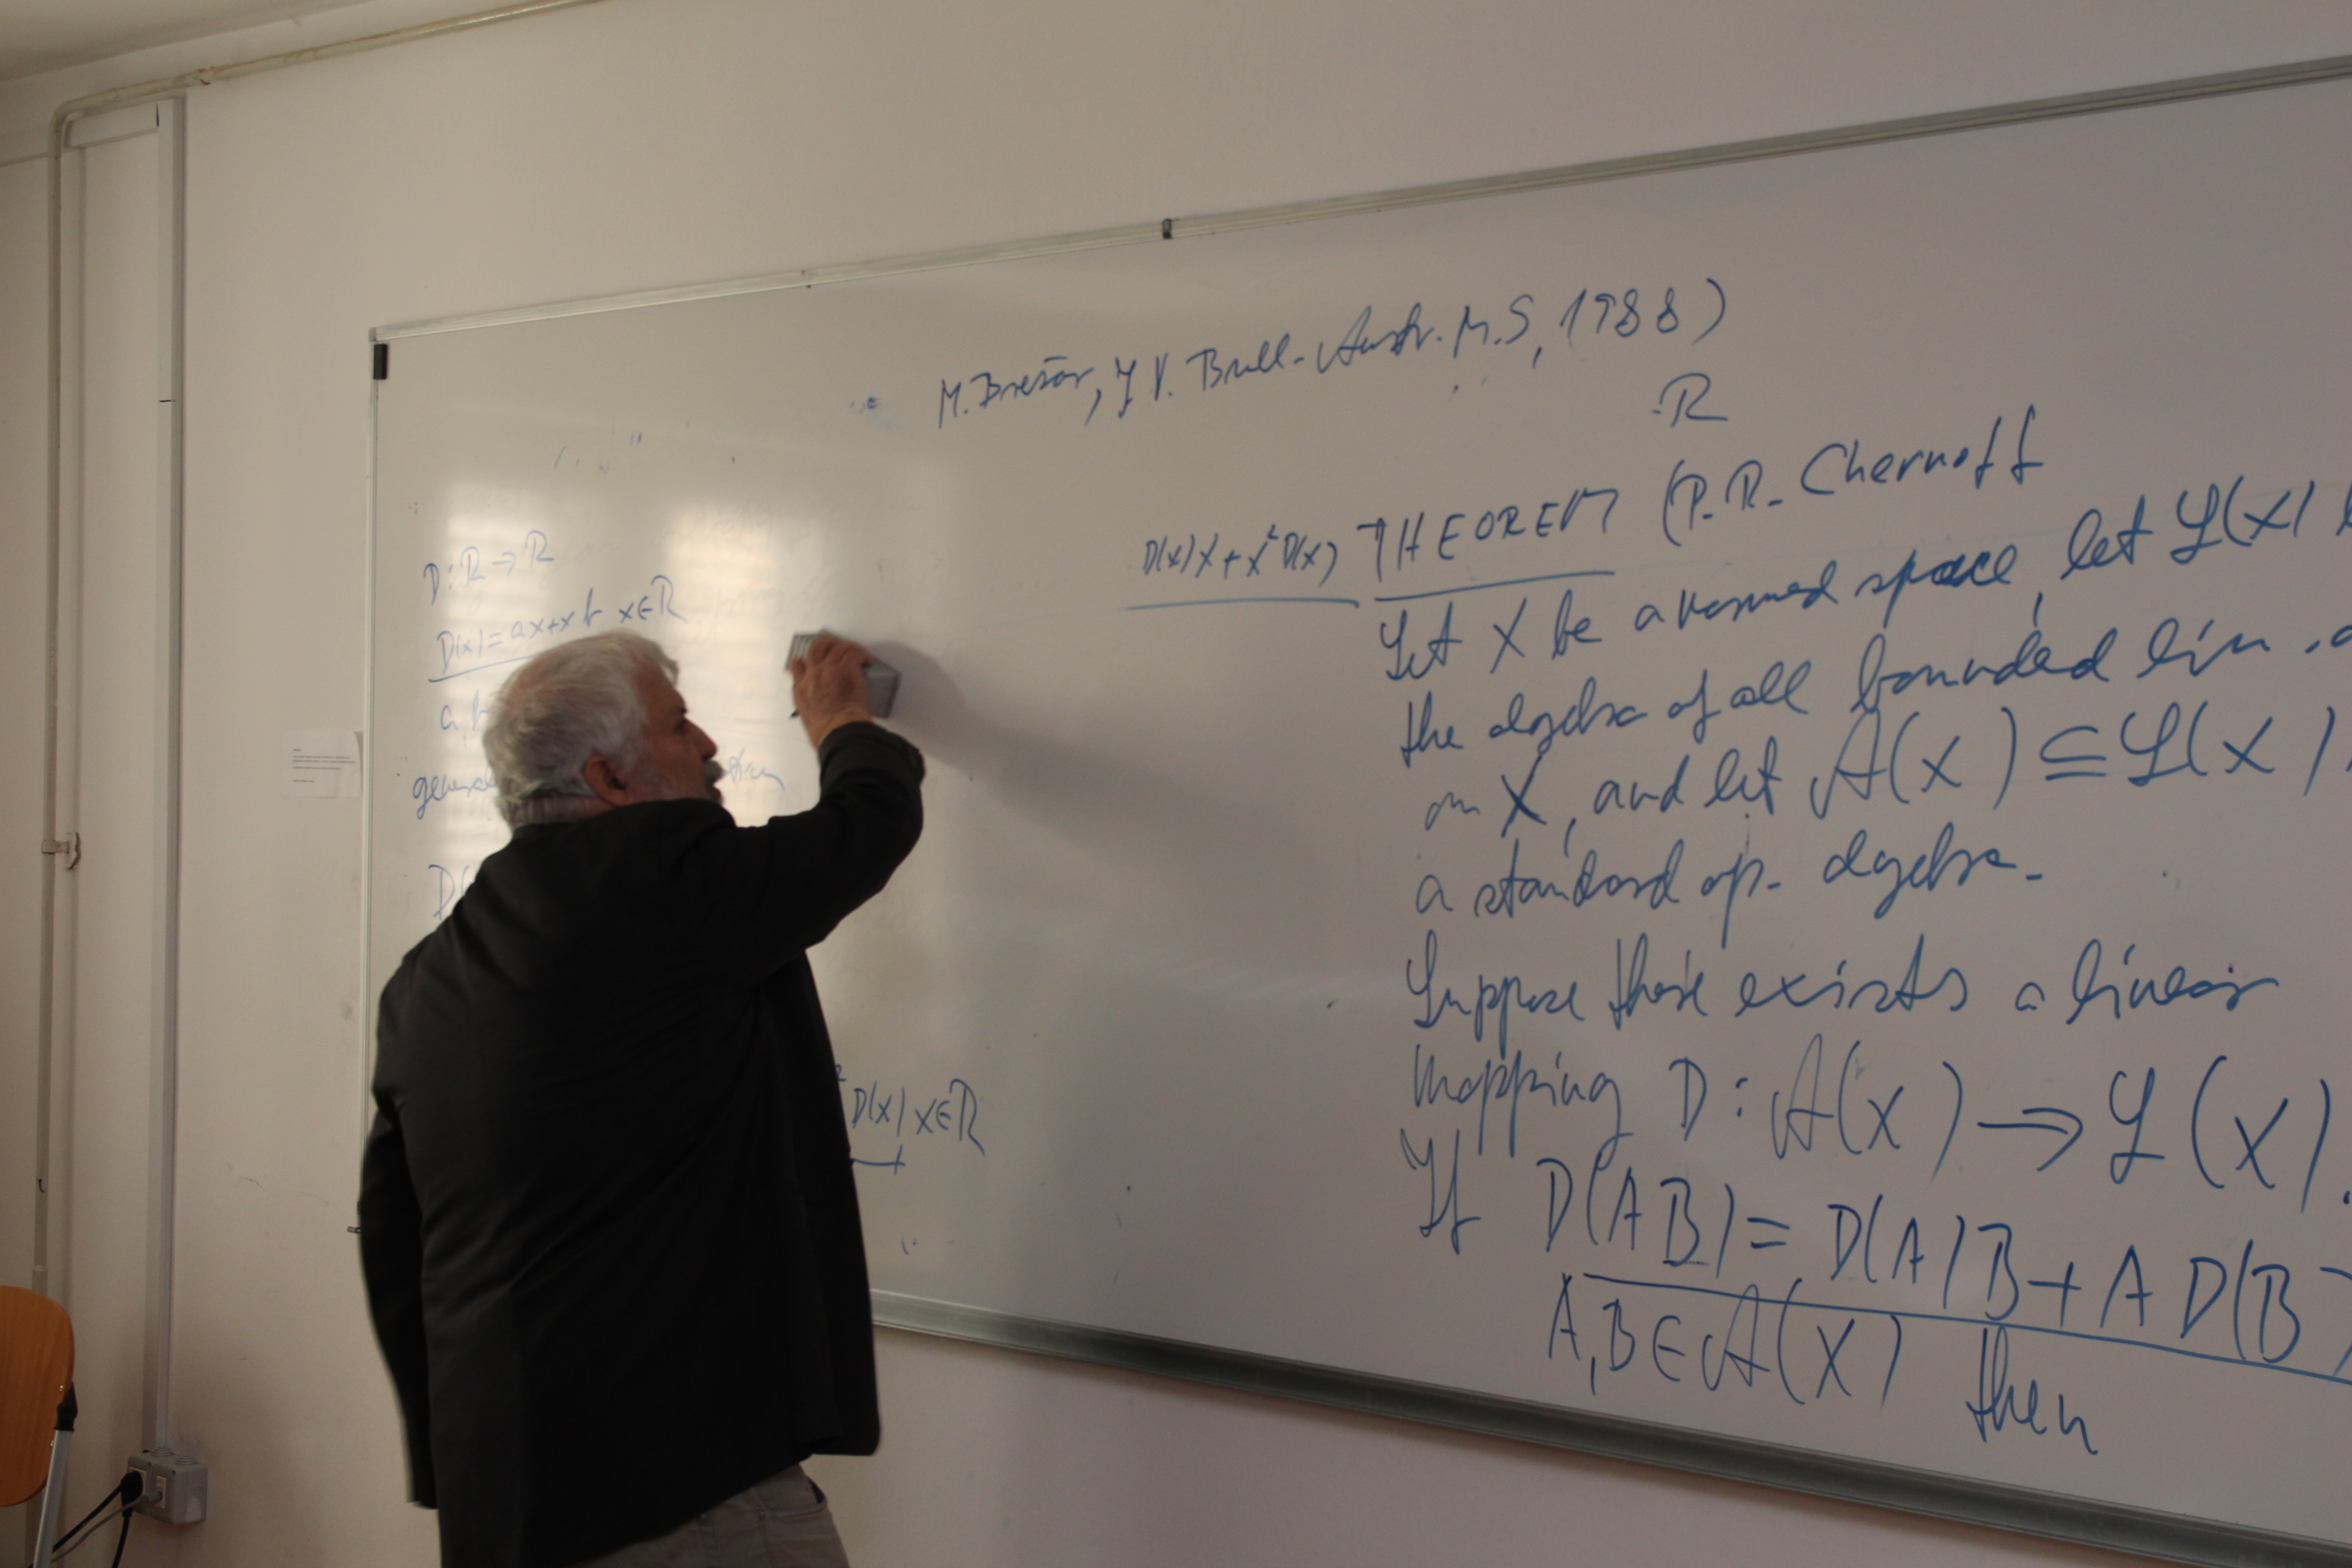 M. Brešar, J V. Bull. Austr. M.S, 1988)
R
D: R → R
D(x) = ax + xb x∈R
a, b
D(
² D(x) x∈R
D(x)x + x² D(x)
THEOREM (P.R. Chernoff
Let X be a normed space, let L(X)
the algebra of all bounded lin.
on X, and let A(X) ⊆ L(X)
a standard op. algebra.
Suppose there exists a linear
mapping D: A(X) → L(X).
If D(AB) = D(A)B + A D(B)
A, B ∈ A(X) then